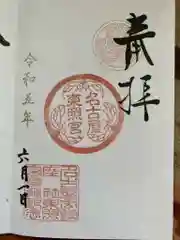 奉拝
名古屋
東照宮
令和五年
六月一日